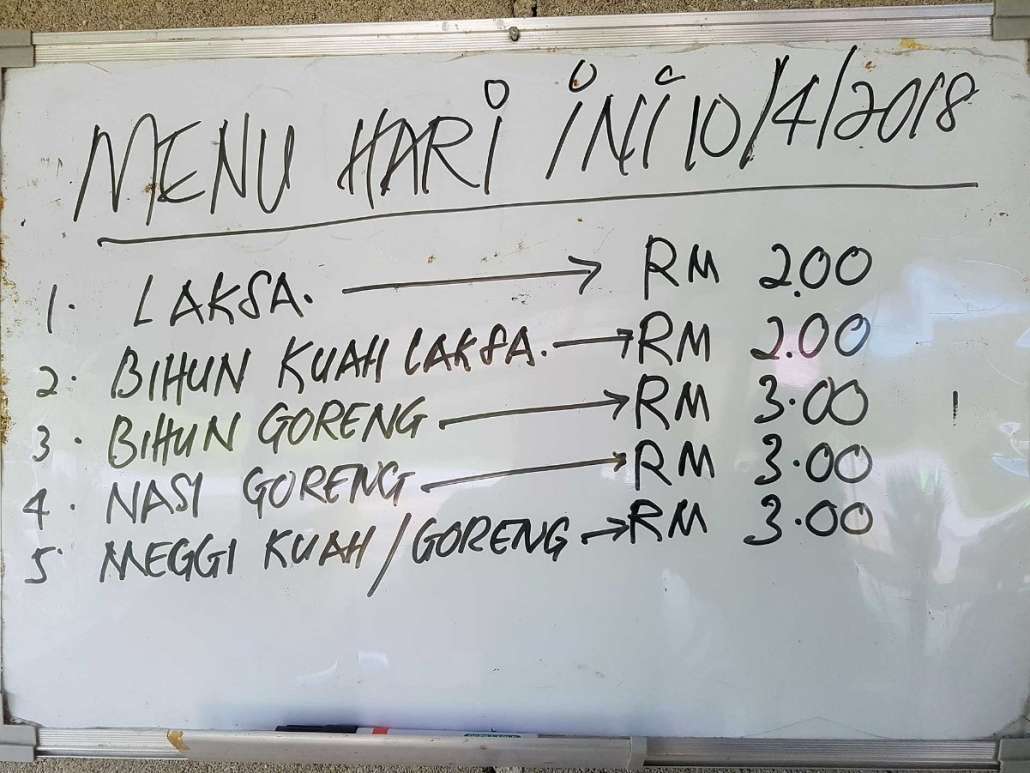 MENU HARI INI 10/4/2018
1. LAKSA. → RM 2.00
2. BIHUN KUAH LAKSA. → RM 2.00
3. BIHUN GORENG → RM 3.00
4. NASI GORENG → RM 3.00
5 MEGGI KUAH/GORENG → RM 3.00